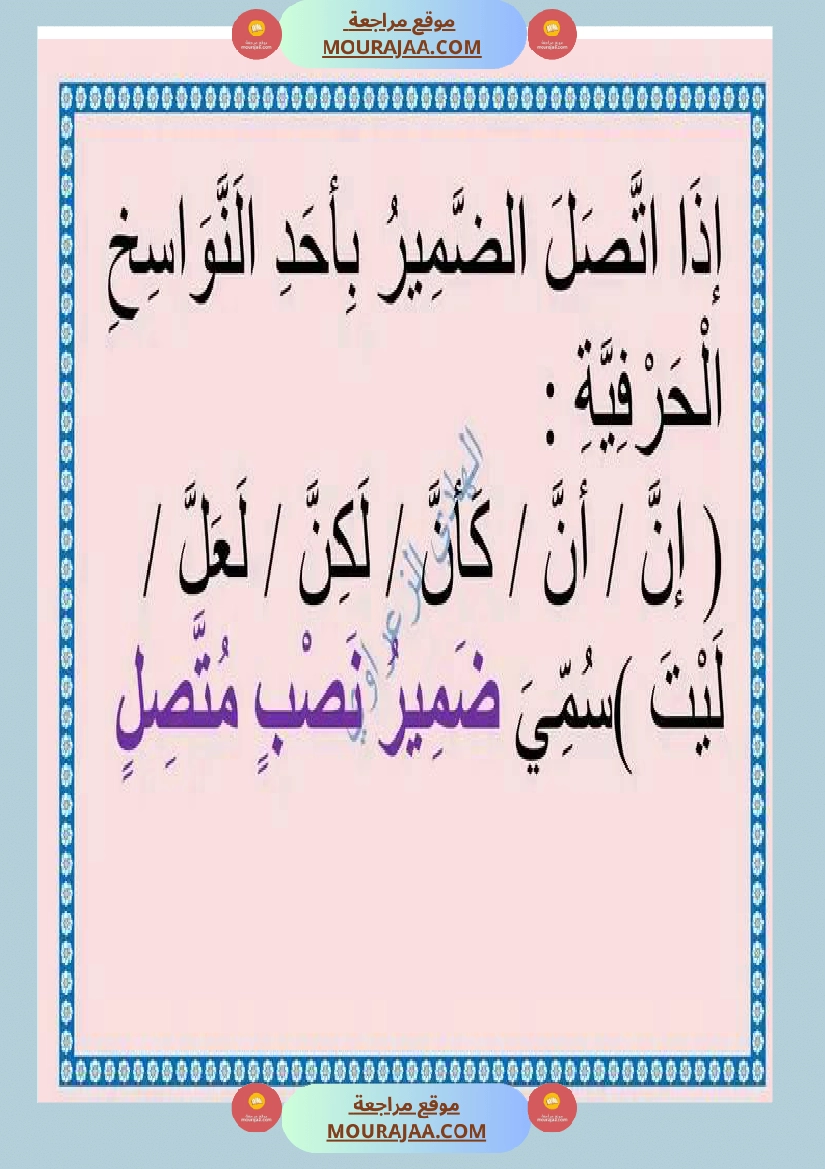 موقع مراجعة
MOURAJAA.COM
إِذَا اتَّصَلَ الضَّمِيرُ بِأَحَدِ الَنَّوَاسِخِ
الْحَرْفِيَّةِ :
( إِنَّ / أَنَّ / كَأَنَّ / لَكِنَّ / لَعَلَّ /
لَيْتَ )سُمِّيَ ضَمِيرُ نَصْبٍ مُتَّصِلٍ
موقع مراجعة
MOURAJAA.COM